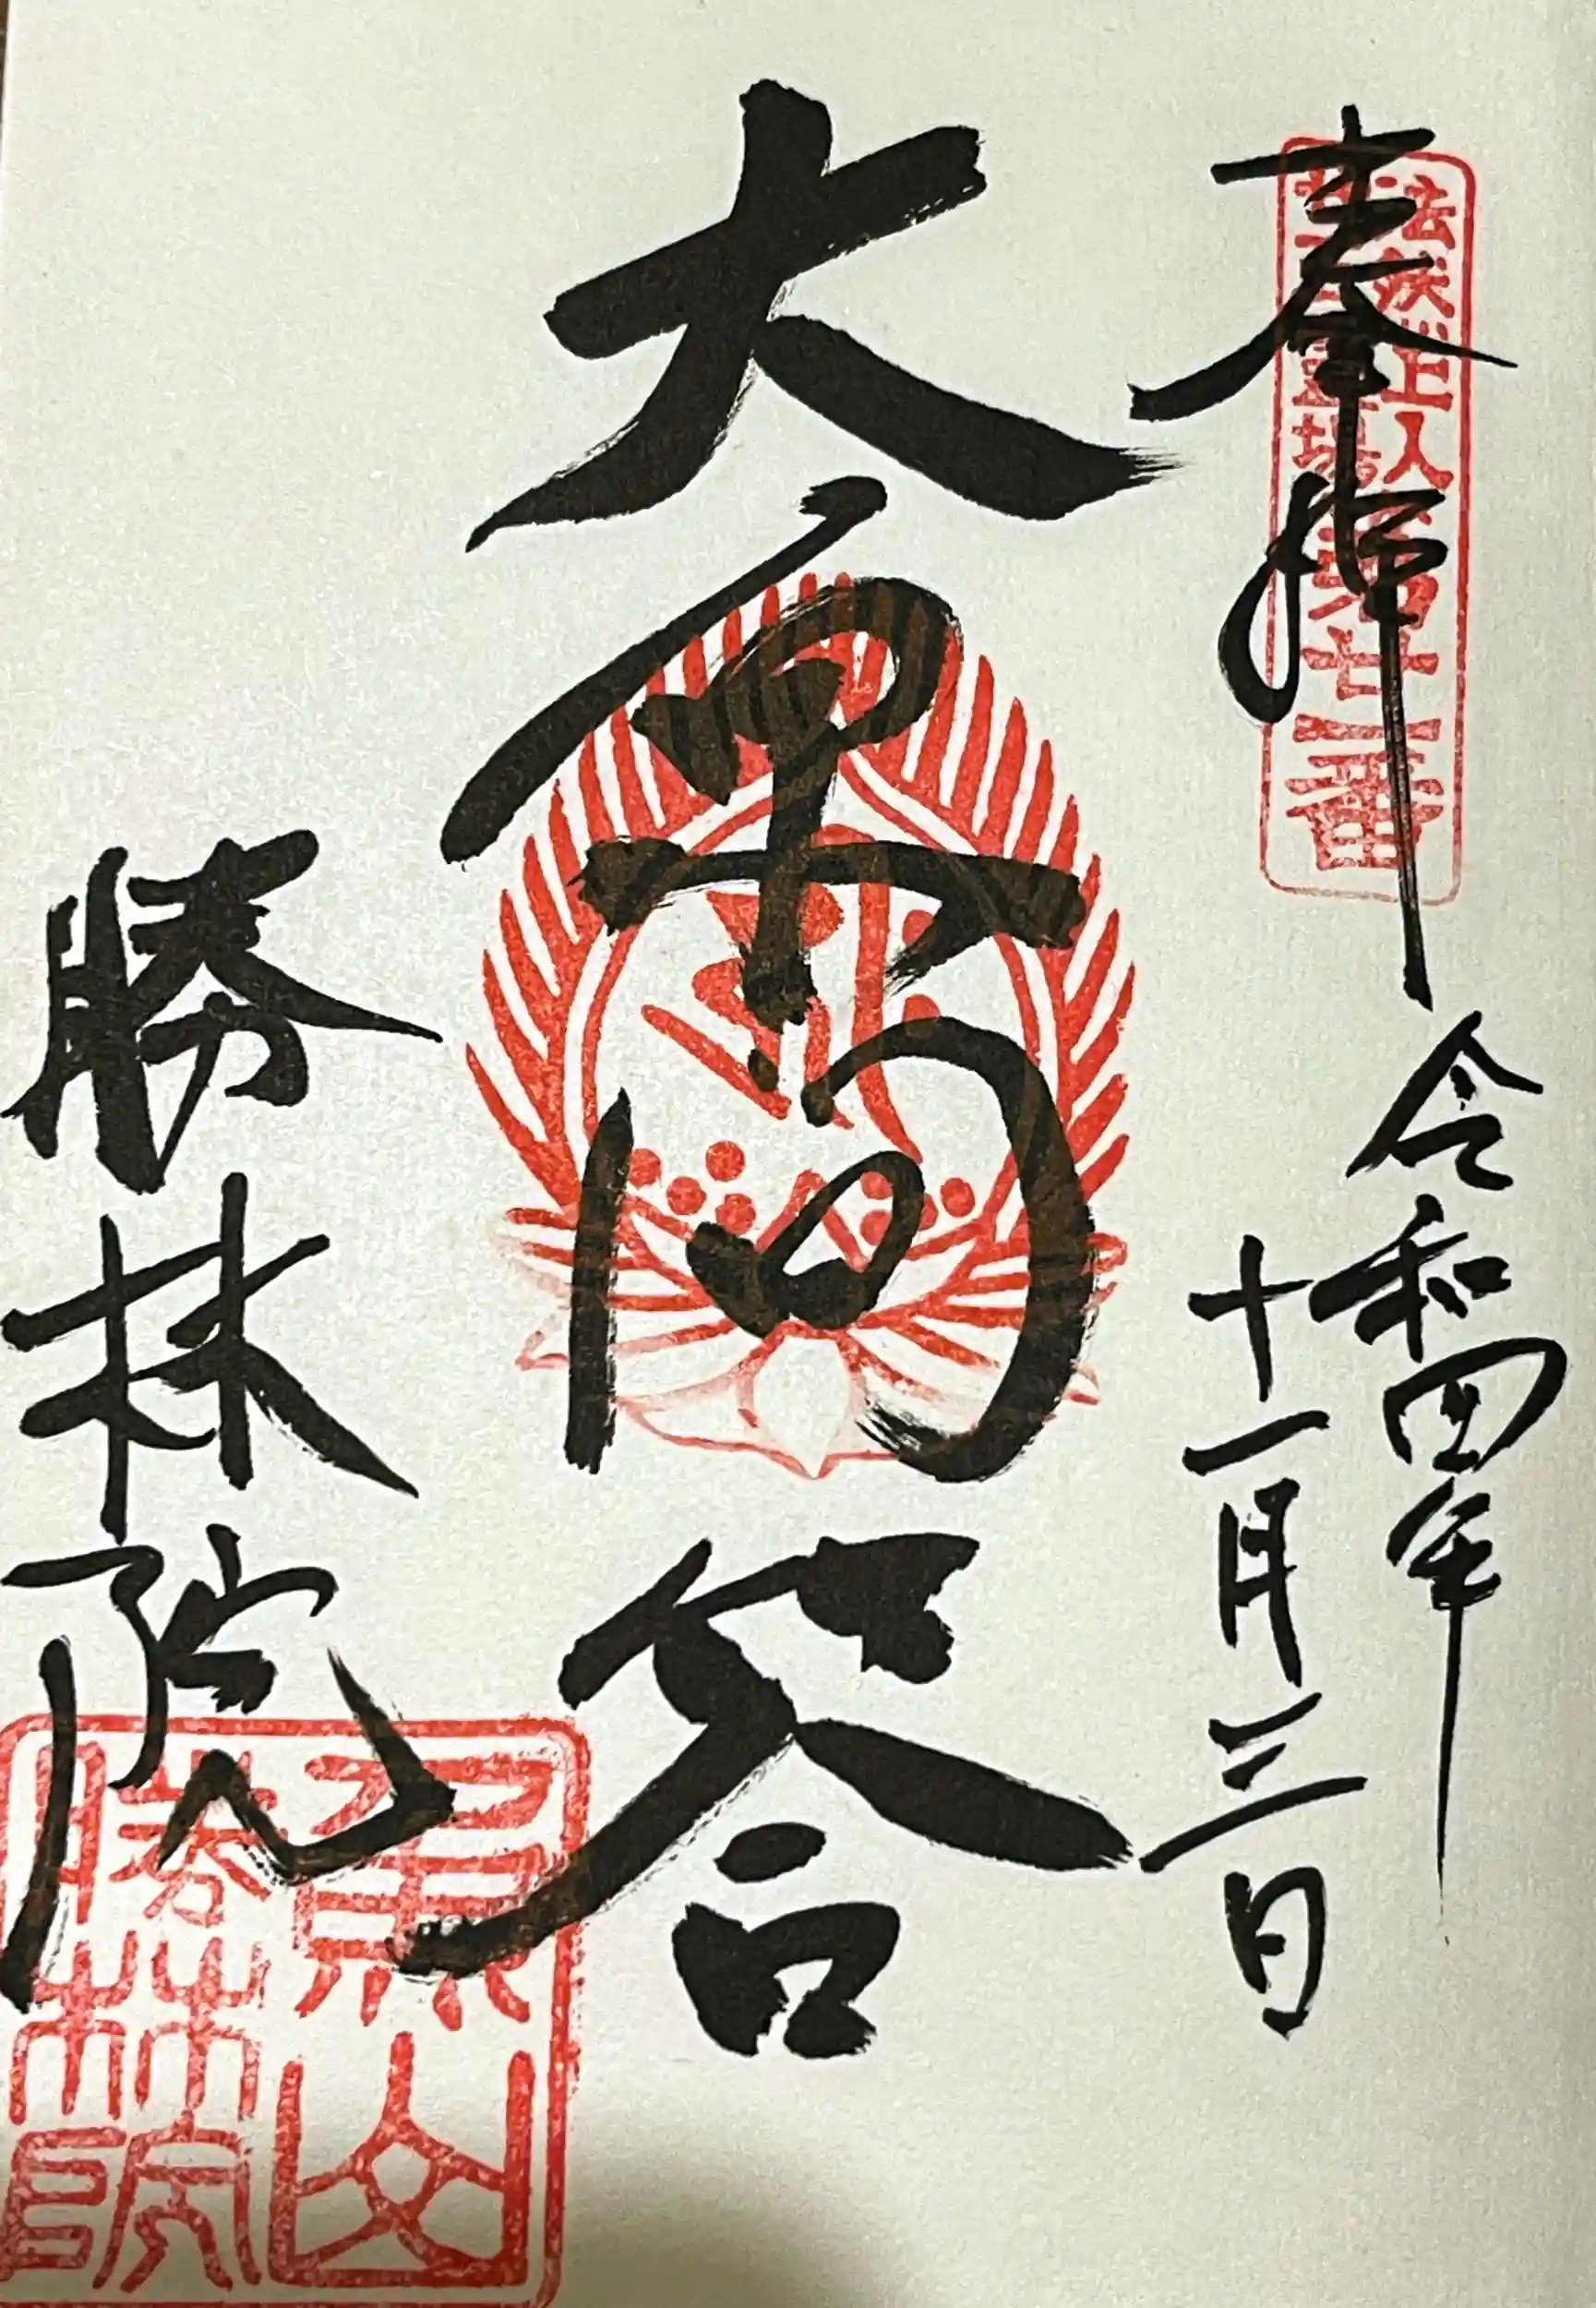 奉拝
法然上人
二十五霊場第廿一番
令和四年
十一月三日
大原問答
勝林院
魚山
勝林院